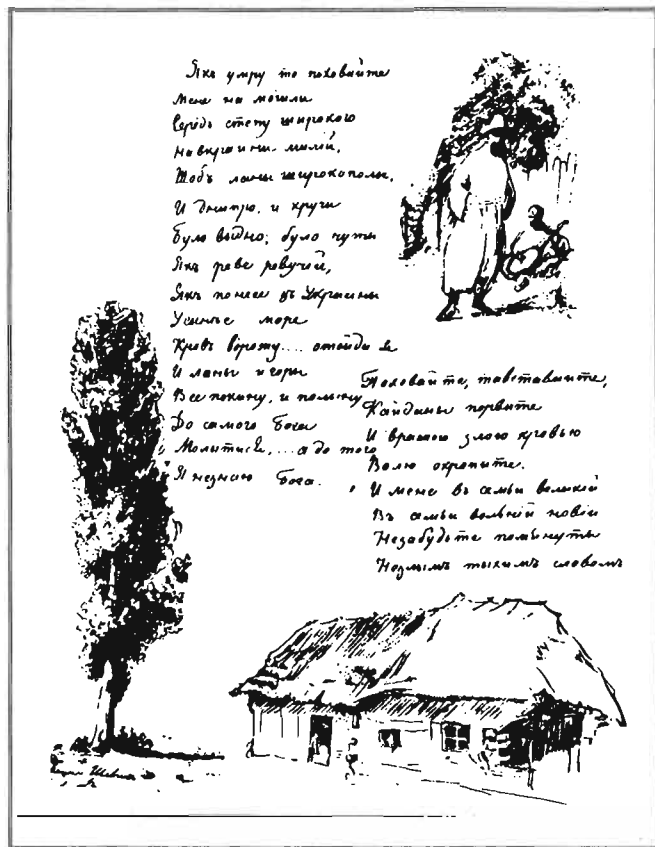 Якъ умру то поховайте
Мене на могыли
Середь степу широкого
На Вкраини милій,
Щобъ ланы широкополы,
И Днипро, и кручи
Було выдно; було чуты
Якъ реве ревучій,
Якъ понесе зъ Украины
У синье море
Кровъ ворожу.... отойди я
И ланы и горы
Все покину, и полыну
До самого Бога
Молытися, ... а до того
Я незнаю Бога.
Поховайте, тавставайте,
Кайданы порвите
И вражою злою кровью
Волю окропите.
И мене въ семьи великій
Въ семьи вольній новій
Незабудьте помъянуты
Незлымъ тыхимъ словомъ